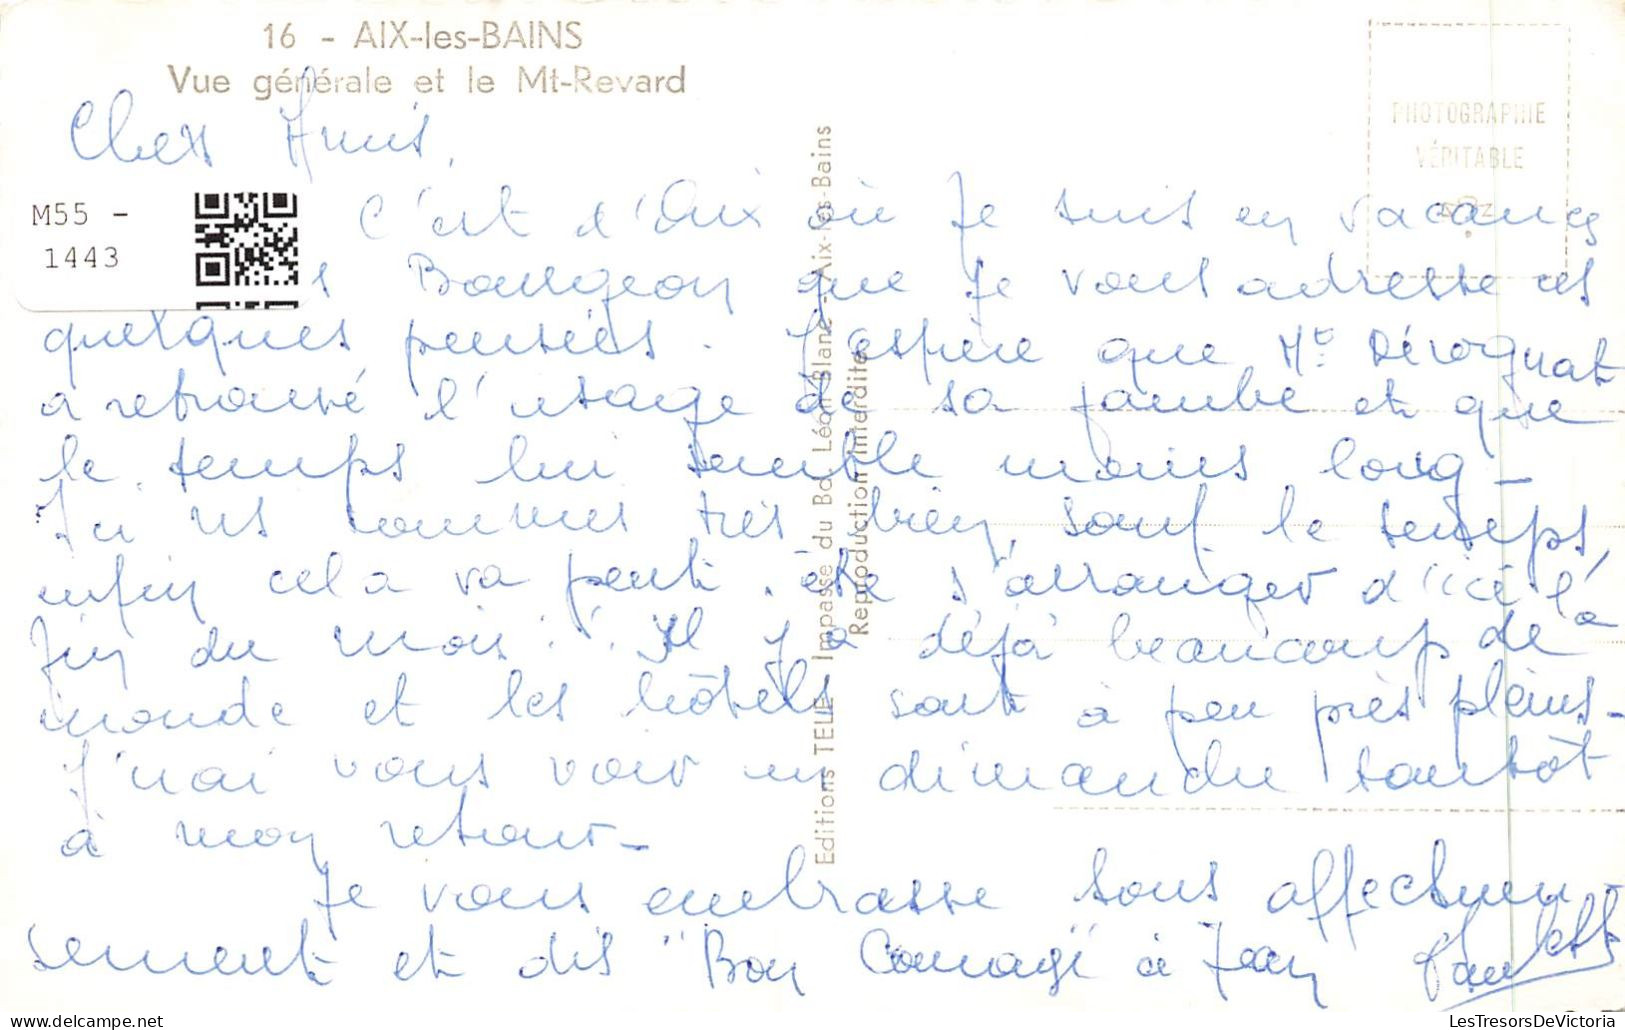 16 - AIX-les-BAINS
Vue générale et le Mt-Revard
PHOTOGRAPHIE
VÉRITABLE
M55 -
1443
Chers Amis,
C'est d'Aix où je suis en vacances
Bourgeon que je vous adresse ces
quelques pensées. J'espère que Mr Dérognat
a retrouvé l'usage de sa jambe et que
le temps lui semble moins long_
Ici ns sommes très bien, sauf le temps,
enfin cela va peut-être s'arranger d'ici la
fin du mois! Il y a déjà beaucoup de
monde et les hôtels sont à peu près pleins_
J'irai vous voir un dimanche tantôt
à mon retour_
Je vous embrasse tous affectueu-
sement et dis "Bon Courage" à Jean
Paulette
Editions TELLE, Impasse du Bd. Léon-Blanc - Aix-les-Bains
Reproduction interdite
LesTresorsDeVictoria
delcampe.net